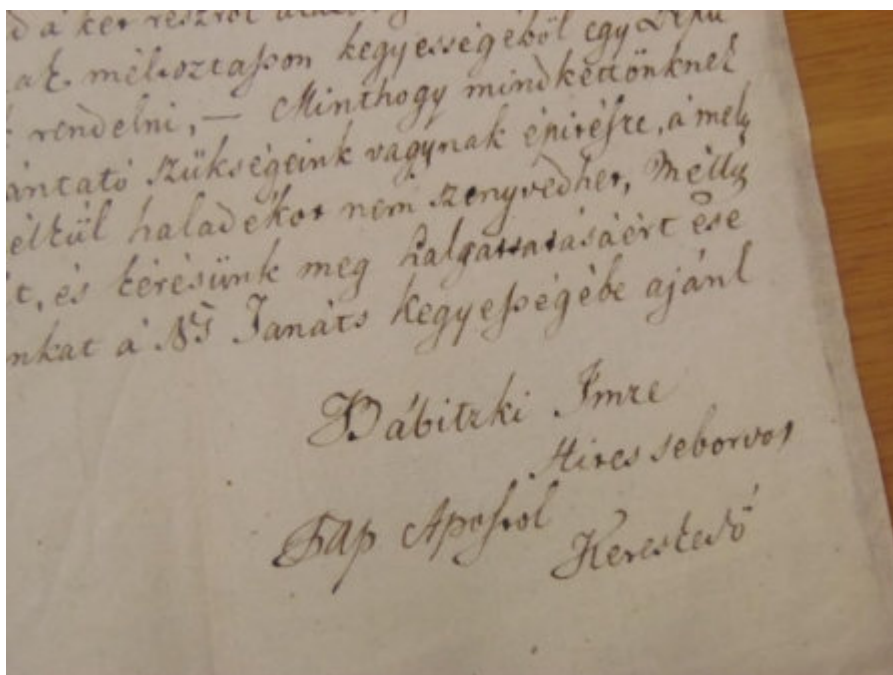 á két részről
mél.oztaſson kegyességéből egy Depu
rendelni, — Minthogy mindkettőnknek
ántató szükségeink vagynak épitésre, á mely
éltűl haladékot nem szenyvedhet, Mélly
t, és kérésünk meg halgattatásáért ese
nkat á Ns Tanáts kegyeſségébe ajánl
Bábitzki Imre
Hites seborvos
Pap Apoſtol
Kereskedő